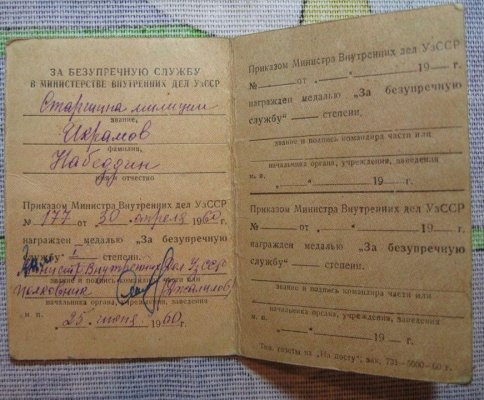 ЗА БЕЗУПРЕЧНУЮ СЛУЖБУ
В МИНИСТЕРСТВЕ ВНУТРЕННИХ ДЕЛ УзССР
Старшина милиции
звание,
Икрамов
фамилия,
Набеддин
имя и отчество
Приказом Министра Внутренних дел УзССР
№ 177 от 30 апреля 1960 г.
награжден медалью „За безупречную
службу“ I степени.
Министр Внутренних дел УзССР
звание и подпись командира части или
полковник Джалилов
начальника органа, учреждения, заведения
м. п. 25 июня 1960 г.
Приказом Министра Внутренних дел УзССР
№ — от „ — “ — 19 — г.
награжден медалью „За безупречную
службу“ — степени,
звание и подпись командира части или
начальника органа, учреждения, заведения
м. п. „ — “ — 19 г.
Приказом Министра Внутренних дел УзССР
№ — от „ — “ — 19 — г.
награжден медалью „За безупречную
службу“ — степени.
звание и подпись командира части или
начальника органа, учреждения, заведения
м. п. „ — “ — 19 г.
Тип. газеты „На посту“, зак. 731—5000—60 г.